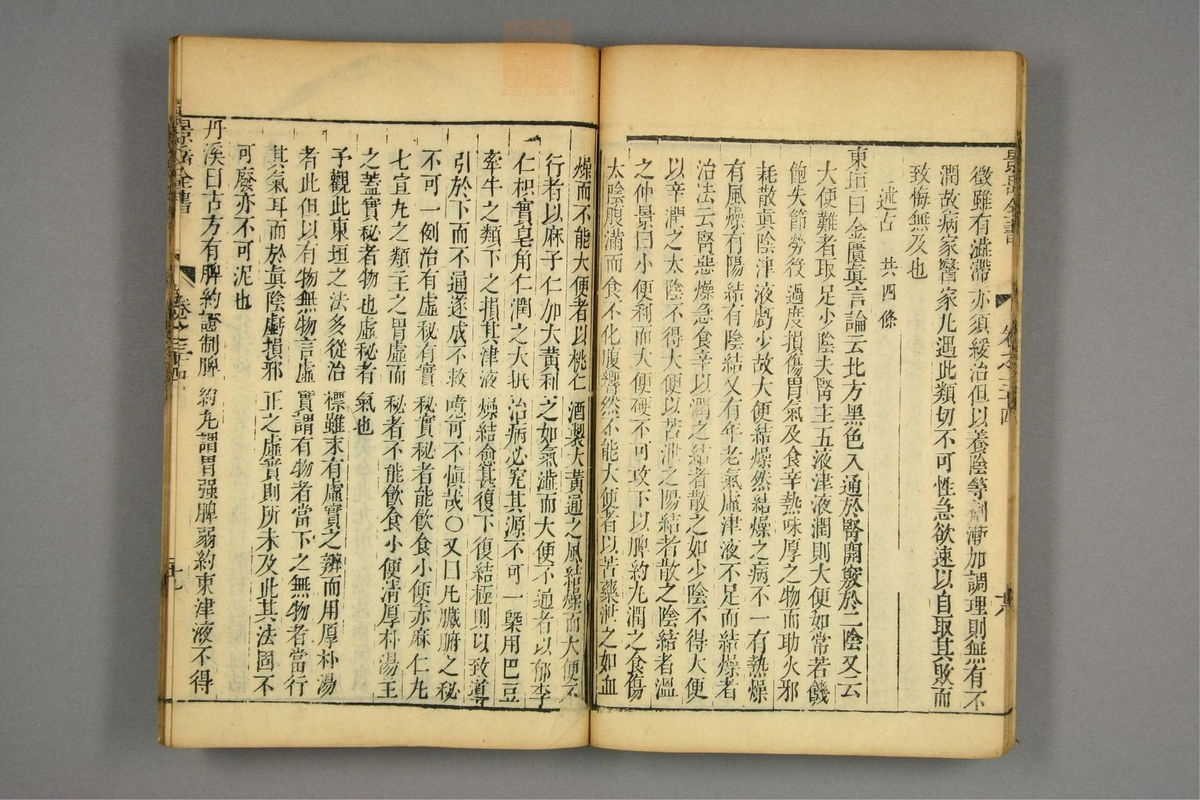 景岳全書 卷之三十四
徵雖有濇滯亦須緩治但以養陰等劑漸加調理則無有不
潤故病家醫家凡遇此類切不可性急欲速以自取其敗而
致悔無及也
述古 共四條
東垣曰金匱眞言論云北方黑色入通於腎開竅於二陰又云
大便難者取足少陰夫腎主五液津液潤則大便如常若饑
飽失節勞役過度損傷胃氣及食辛熱味厚之物而助火邪
耗散眞陰津液虧少故大便結燥然結燥之病不一有熱燥
有風燥有陽結有陰結又有年老氣虛津液不足而結燥者
治法云腎惡燥急食辛以潤之結者散之如少陰不得大便
以辛潤之太陰不得大便以苦泄之陽結者散之陰結者溫
之仲景曰小便利而大便硬不可攻下以脾約丸潤之食傷
太陰腹滿而食不化腹響然不能大便者以苦藥泄之如血
燥而不能大便者以桃仁酒製大黃通之風結燥而大便不
行者以麻子仁加大黃利之如氣濇而大便不通者以郁李
仁枳實皂角仁潤之大抵治病必究其源不可一槩用巴豆
牽牛之類下之損其津液燥結愈甚復下復結極則以致導
引於下而不通遂成不救噫何不慎哉○又曰凡臟腑之秘
不可一例治有虛秘有實秘實秘者能飲食小便赤麻仁丸
七宣丸之類主之胃虛而秘者不能飲食小便清厚朴湯主
之蓋實秘者物也虛秘者氣也
予觀此東垣之法多從治標雖末有虛實之辨而用厚朴湯
者此但以有物無物言虛實謂有物者當下之無物者當行
其氣耳而於眞陰虧損邪正之虛實則所未及此其法固不
可廢亦不可泥也
丹溪曰古方有脾約證制脾約丸謂胃强脾弱約束津液不得
景岳全書 卷之三十四